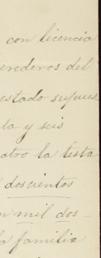 con licencia
rederos del
estado
ta y seis
atro la testa
doscientos
mil dos-
la familia